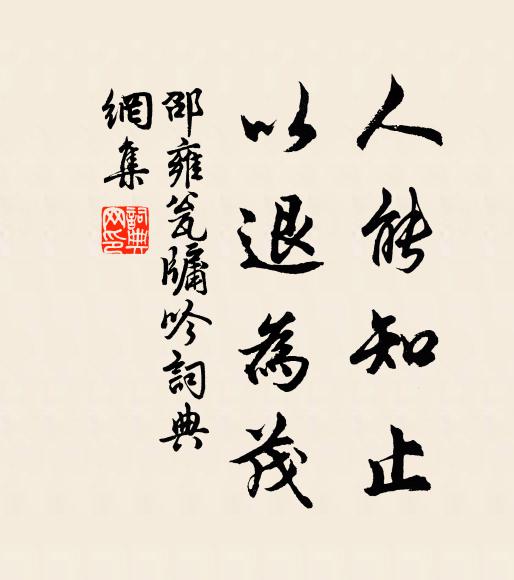 人能知止
以退為茂
邵雍瓮牖吟詞典
網集
詞典
网印